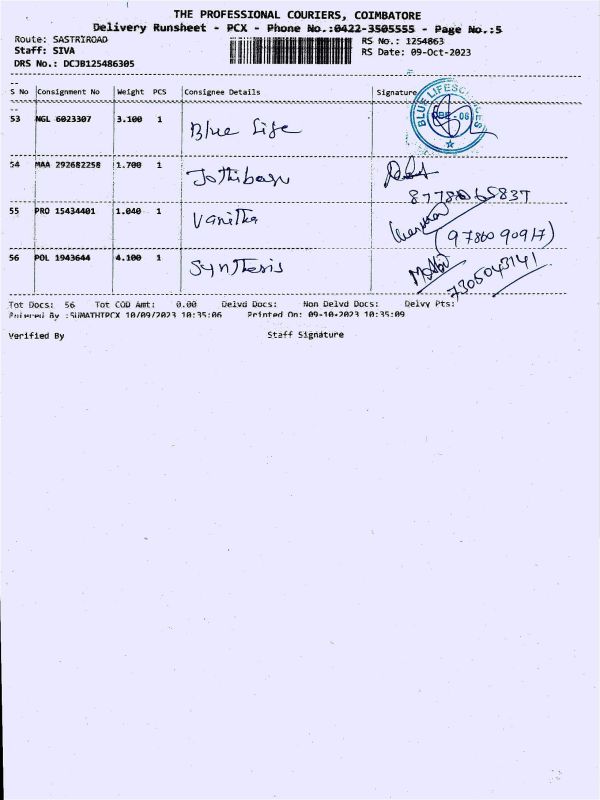 THE PROFESSIONAL COURIERS, COIMBATORE
Delivery Runsheet - PCX - Phone No.:0422-3505555 - Page No.:5
Route: SASTRIROAD RS No.: 1254863
Staff: SIVA RS Date: 09-Oct-2023
DRS No.: DCJB125486305
S No Consignment No Weight PCS Consignee Details Signature
53 NGL 6023307 3.100 1 Blue Life
BLUE LIFESCIENCES
54 MAA 292682258 1.700 1 Jothibasu
55 PRO 15434401 1.040 1 Vanitha
(9786090917)
56 POL 1943644 4.100 1 Synthesis
7305043141
Tot Docs: 56 Tot COD Amt: 0.00 Delvd Docs: Non Delvd Docs: Delvy Pts:
Entered By :SUMATHIPCX 10/09/2023 10:35:06 Printed On: 09-10-2023 10:35:09
Verified By Staff Signature